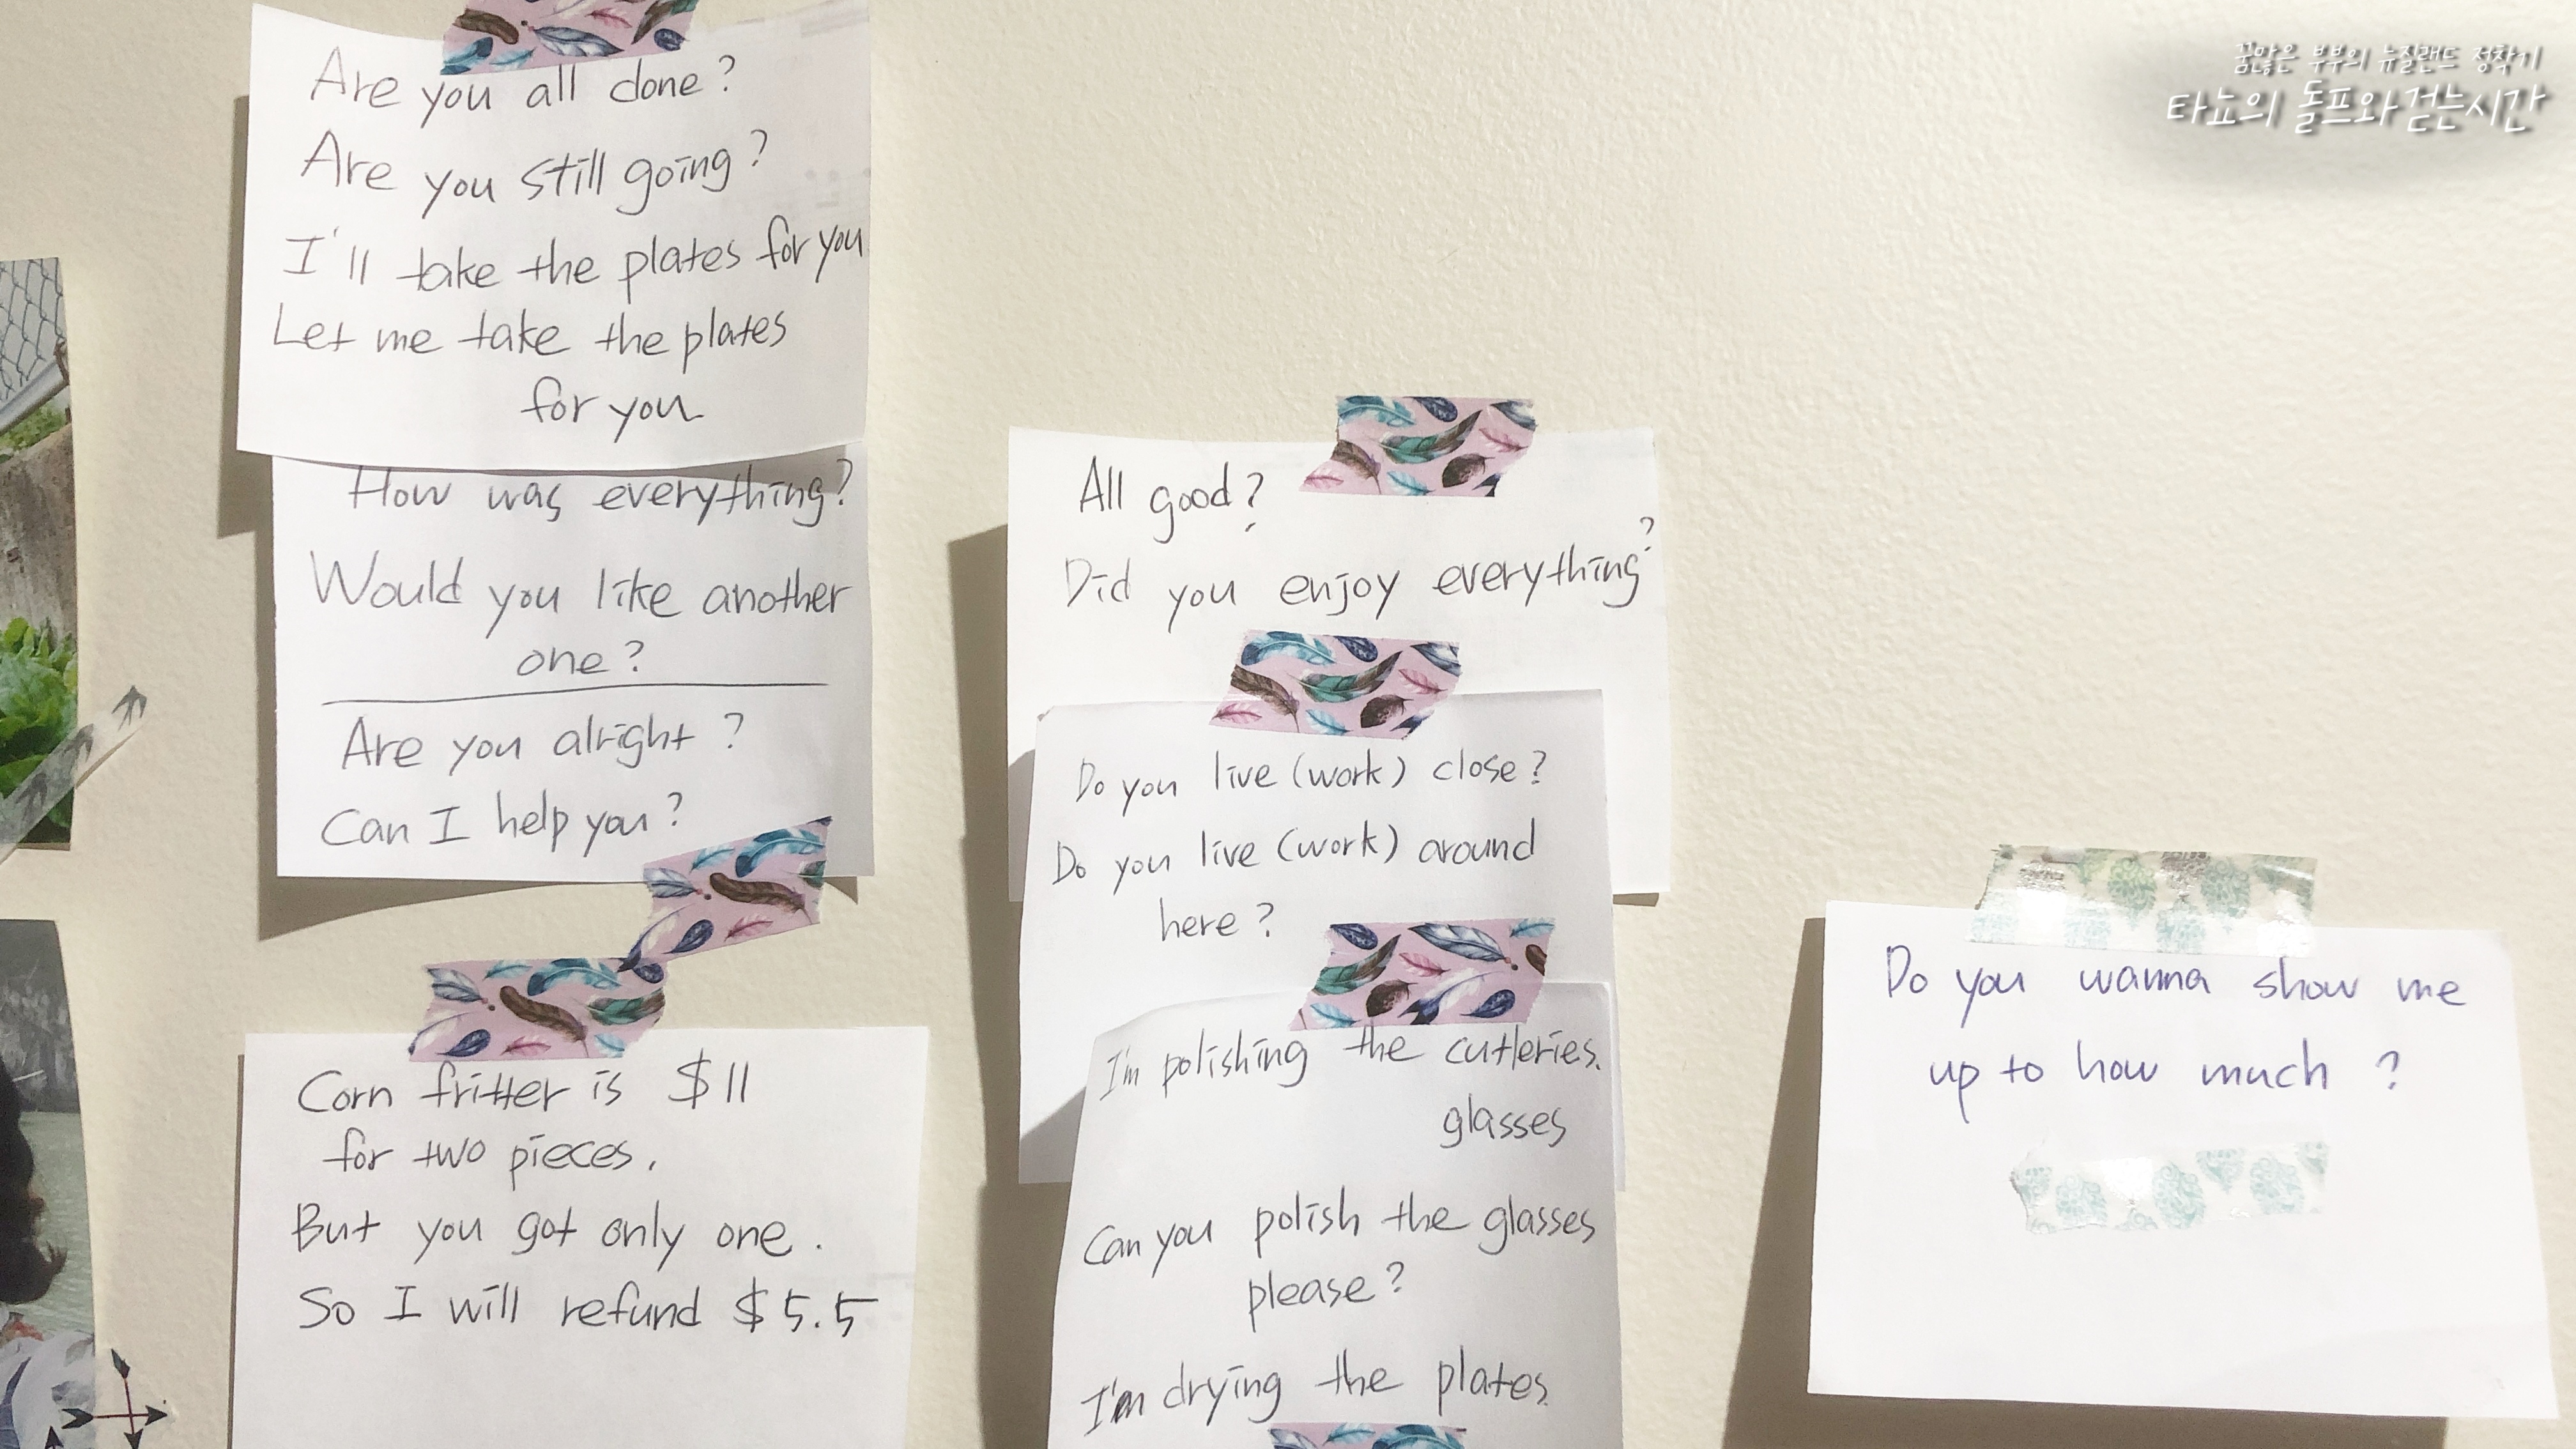 꿈많은 부부의 뉴질랜드 정착기
타뇨의 돌프와걷는시간
Are you all done?
Are you still going?
I'll take the plates for you
Let me take the plates
for you
How was everything?
Would you like another
one?
Are you alright?
Can I help you?
Corn fritter is $11
for two pieces.
But you got only one.
So I will refund $5.5
All good?
Did you enjoy everything?
Do you live (work) close?
Do you live (work) around
here?
I'm polishing the cutleries.
glasses
Can you polish the glasses
please?
I'm drying the plates.
Do you wanna show me
up to how much?